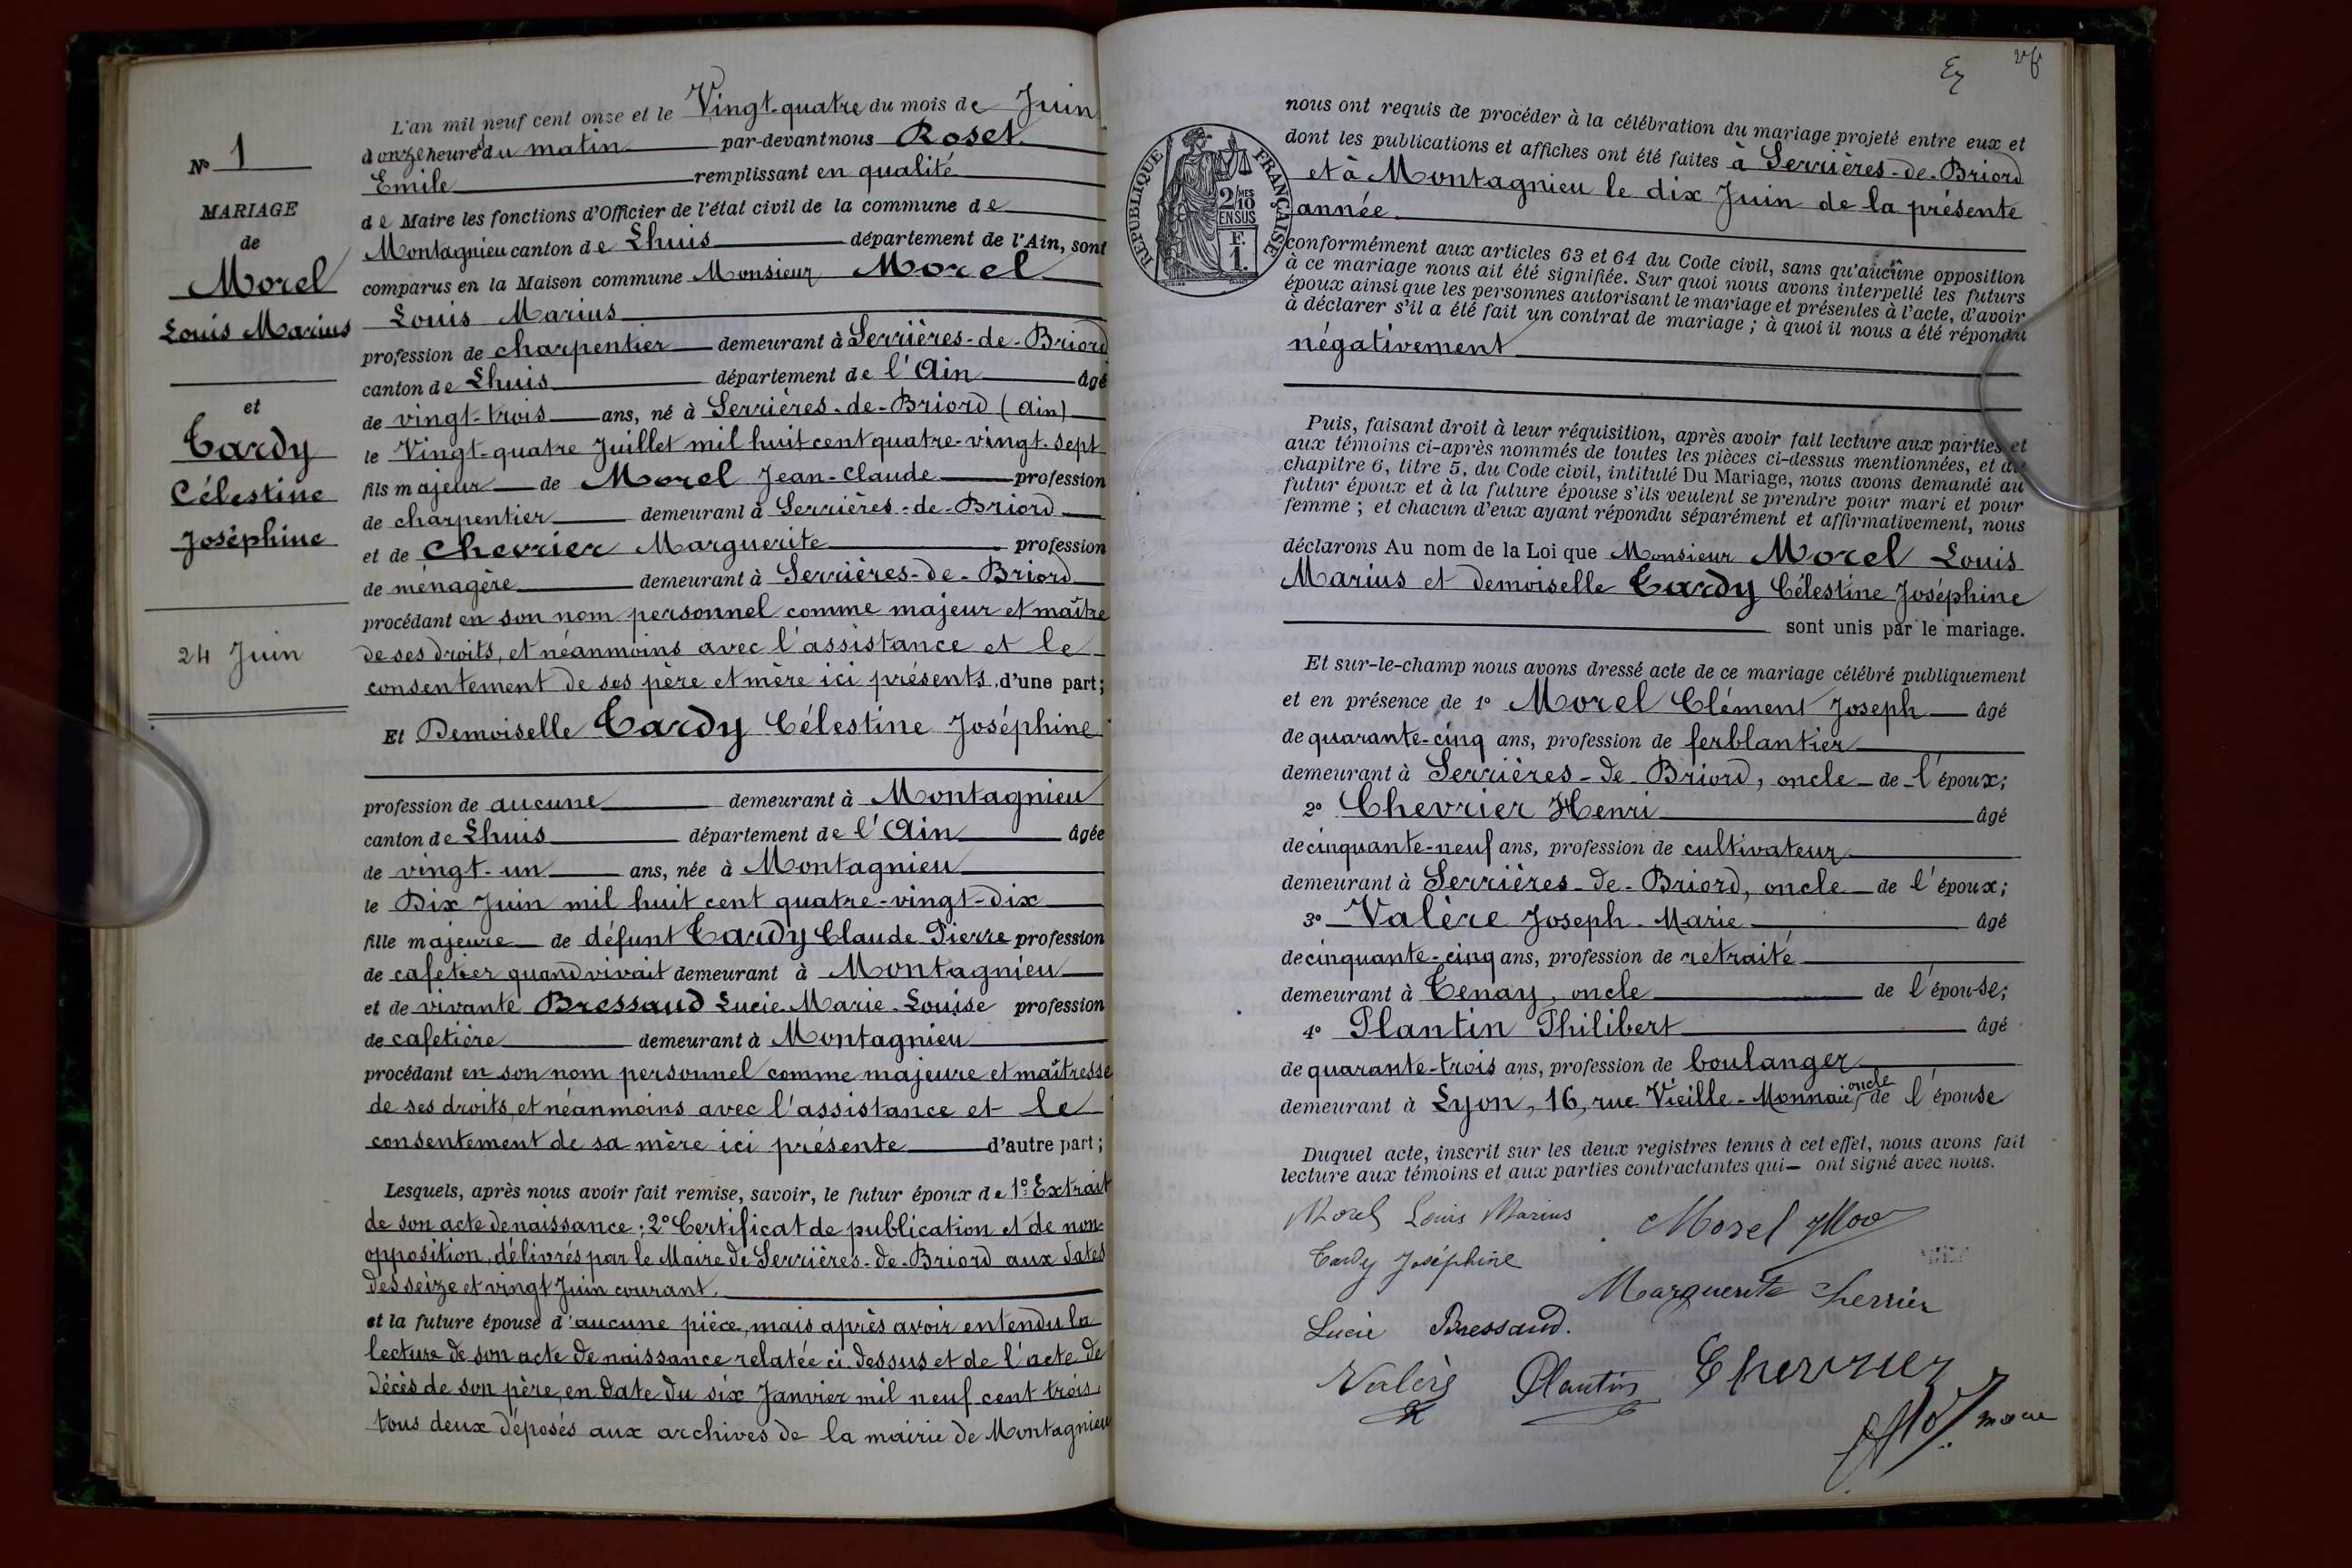 N° 1
MARIAGE
de
Morel
Louis Marius
et
Tardy
Célestine
Joséphine
24 Juin
L'an mil neuf cent onze et le Vingt-quatre du mois de Juin
à onze heures du matin par-devant nous Roset
Emile remplissant en qualité
de Maire les fonctions d'Officier de l'état civil de la commune de
Montagnieu canton de Lhuis département de l'Ain, sont
comparus en la Maison commune Monsieur Morel
Louis Marius
profession de charpentier demeurant à Serrières-de-Briord
canton de Lhuis département de l'Ain âgé
de vingt-trois ans, né à Serrières-de-Briord (Ain)
le Vingt-quatre Juillet mil huit cent quatre-vingt-sept
fils majeur de Morel Jean-Claude profession
de charpentier demeurant à Serrières-de-Briord
et de Chevrier Marguerite profession
de ménagère demeurant à Serrières-de-Briord
procédant en son nom personnel comme majeur et maître
de ses droits, et néanmoins avec l'assistance et le
consentement de ses père et mère ici présents, d'une part;
Et Demoiselle Tardy Célestine Joséphine
profession de aucune demeurant à Montagnieu
canton de Lhuis département de l'Ain âgée
de vingt-un ans, née à Montagnieu
le Dix Juin mil huit cent quatre-vingt-dix
fille majeure de défunt Tardy Claude Pierre profession
de cafetier quand vivait demeurant à Montagnieu
et de vivante Bressaud Lucie Marie-Louise profession
de cafetière demeurant à Montagnieu
procédant en son nom personnel comme majeure et maîtresse
de ses droits, et néanmoins avec l'assistance et le
consentement de sa mère ici présente d'autre part;
Lesquels, après nous avoir fait remise, savoir, le futur époux de 1° Extrait
de son acte de naissance; 2° Certificat de publication et de non-
opposition, délivrés par le Maire de Serrières-de-Briord aux dates
des seize et vingt Juin courant.
et la future épouse d'aucune pièce, mais après avoir entendu la
lecture de son acte de naissance relatée ci-dessus et de l'acte de
décès de son père, en date du six Janvier mil neuf cent trois
tous deux déposés aux archives de la mairie de Montagnieu
RÉPUBLIQUE FRANÇAISE
2/10 MES
EN SUS
F.
1.
nous ont requis de procéder à la célébration du mariage projeté entre eux et
dont les publications et affiches ont été faites à Serrières-de-Briord
et à Montagnieu le dix Juin de la présente
année
conformément aux articles 63 et 64 du Code civil, sans qu'aucune opposition
à ce mariage nous ait été signifiée. Sur quoi nous avons interpellé les futurs
époux ainsi que les personnes autorisant le mariage et présentes à l'acte, d'avoir
à déclarer s'il a été fait un contrat de mariage; à quoi il nous a été répondu
négativement
Puis, faisant droit à leur réquisition, après avoir fait lecture aux parties et
aux témoins ci-après nommés de toutes les pièces ci-dessus mentionnées, et du
chapitre 6, titre 5, du Code civil, intitulé Du Mariage, nous avons demandé au
futur époux et à la future épouse s'ils veulent se prendre pour mari et pour
femme; et chacun d'eux ayant répondu séparément et affirmativement, nous
déclarons Au nom de la Loi que Monsieur Morel Louis
Marius et demoiselle Tardy Célestine Joséphine
sont unis par le mariage.
Et sur-le-champ nous avons dressé acte de ce mariage célébré publiquement
et en présence de 1° Morel Clément Joseph âgé
de quarante-cinq ans, profession de ferblantier
demeurant à Serrières-de-Briord, oncle de l'époux;
2° Chevrier Henri âgé
de cinquante-neuf ans, profession de cultivateur
demeurant à Serrières-de-Briord, oncle de l'époux;
3° Valère Joseph-Marie âgé
de cinquante-cinq ans, profession de retraité
demeurant à Tenay, oncle de l'épouse;
4° Plantin Philibert âgé
de quarante-trois ans, profession de boulanger
demeurant à Lyon, 16, rue Vieille-Monnaie, oncle de l'épouse
Duquel acte, inscrit sur les deux registres tenus à cet effet, nous avons fait
lecture aux témoins et aux parties contractantes qui ont signé avec nous.
Morel Louis Marius Morel
Tardy Joséphine
Marguerite Cherrier
Lucie Bressaud.
Valère Plantin Chevrier